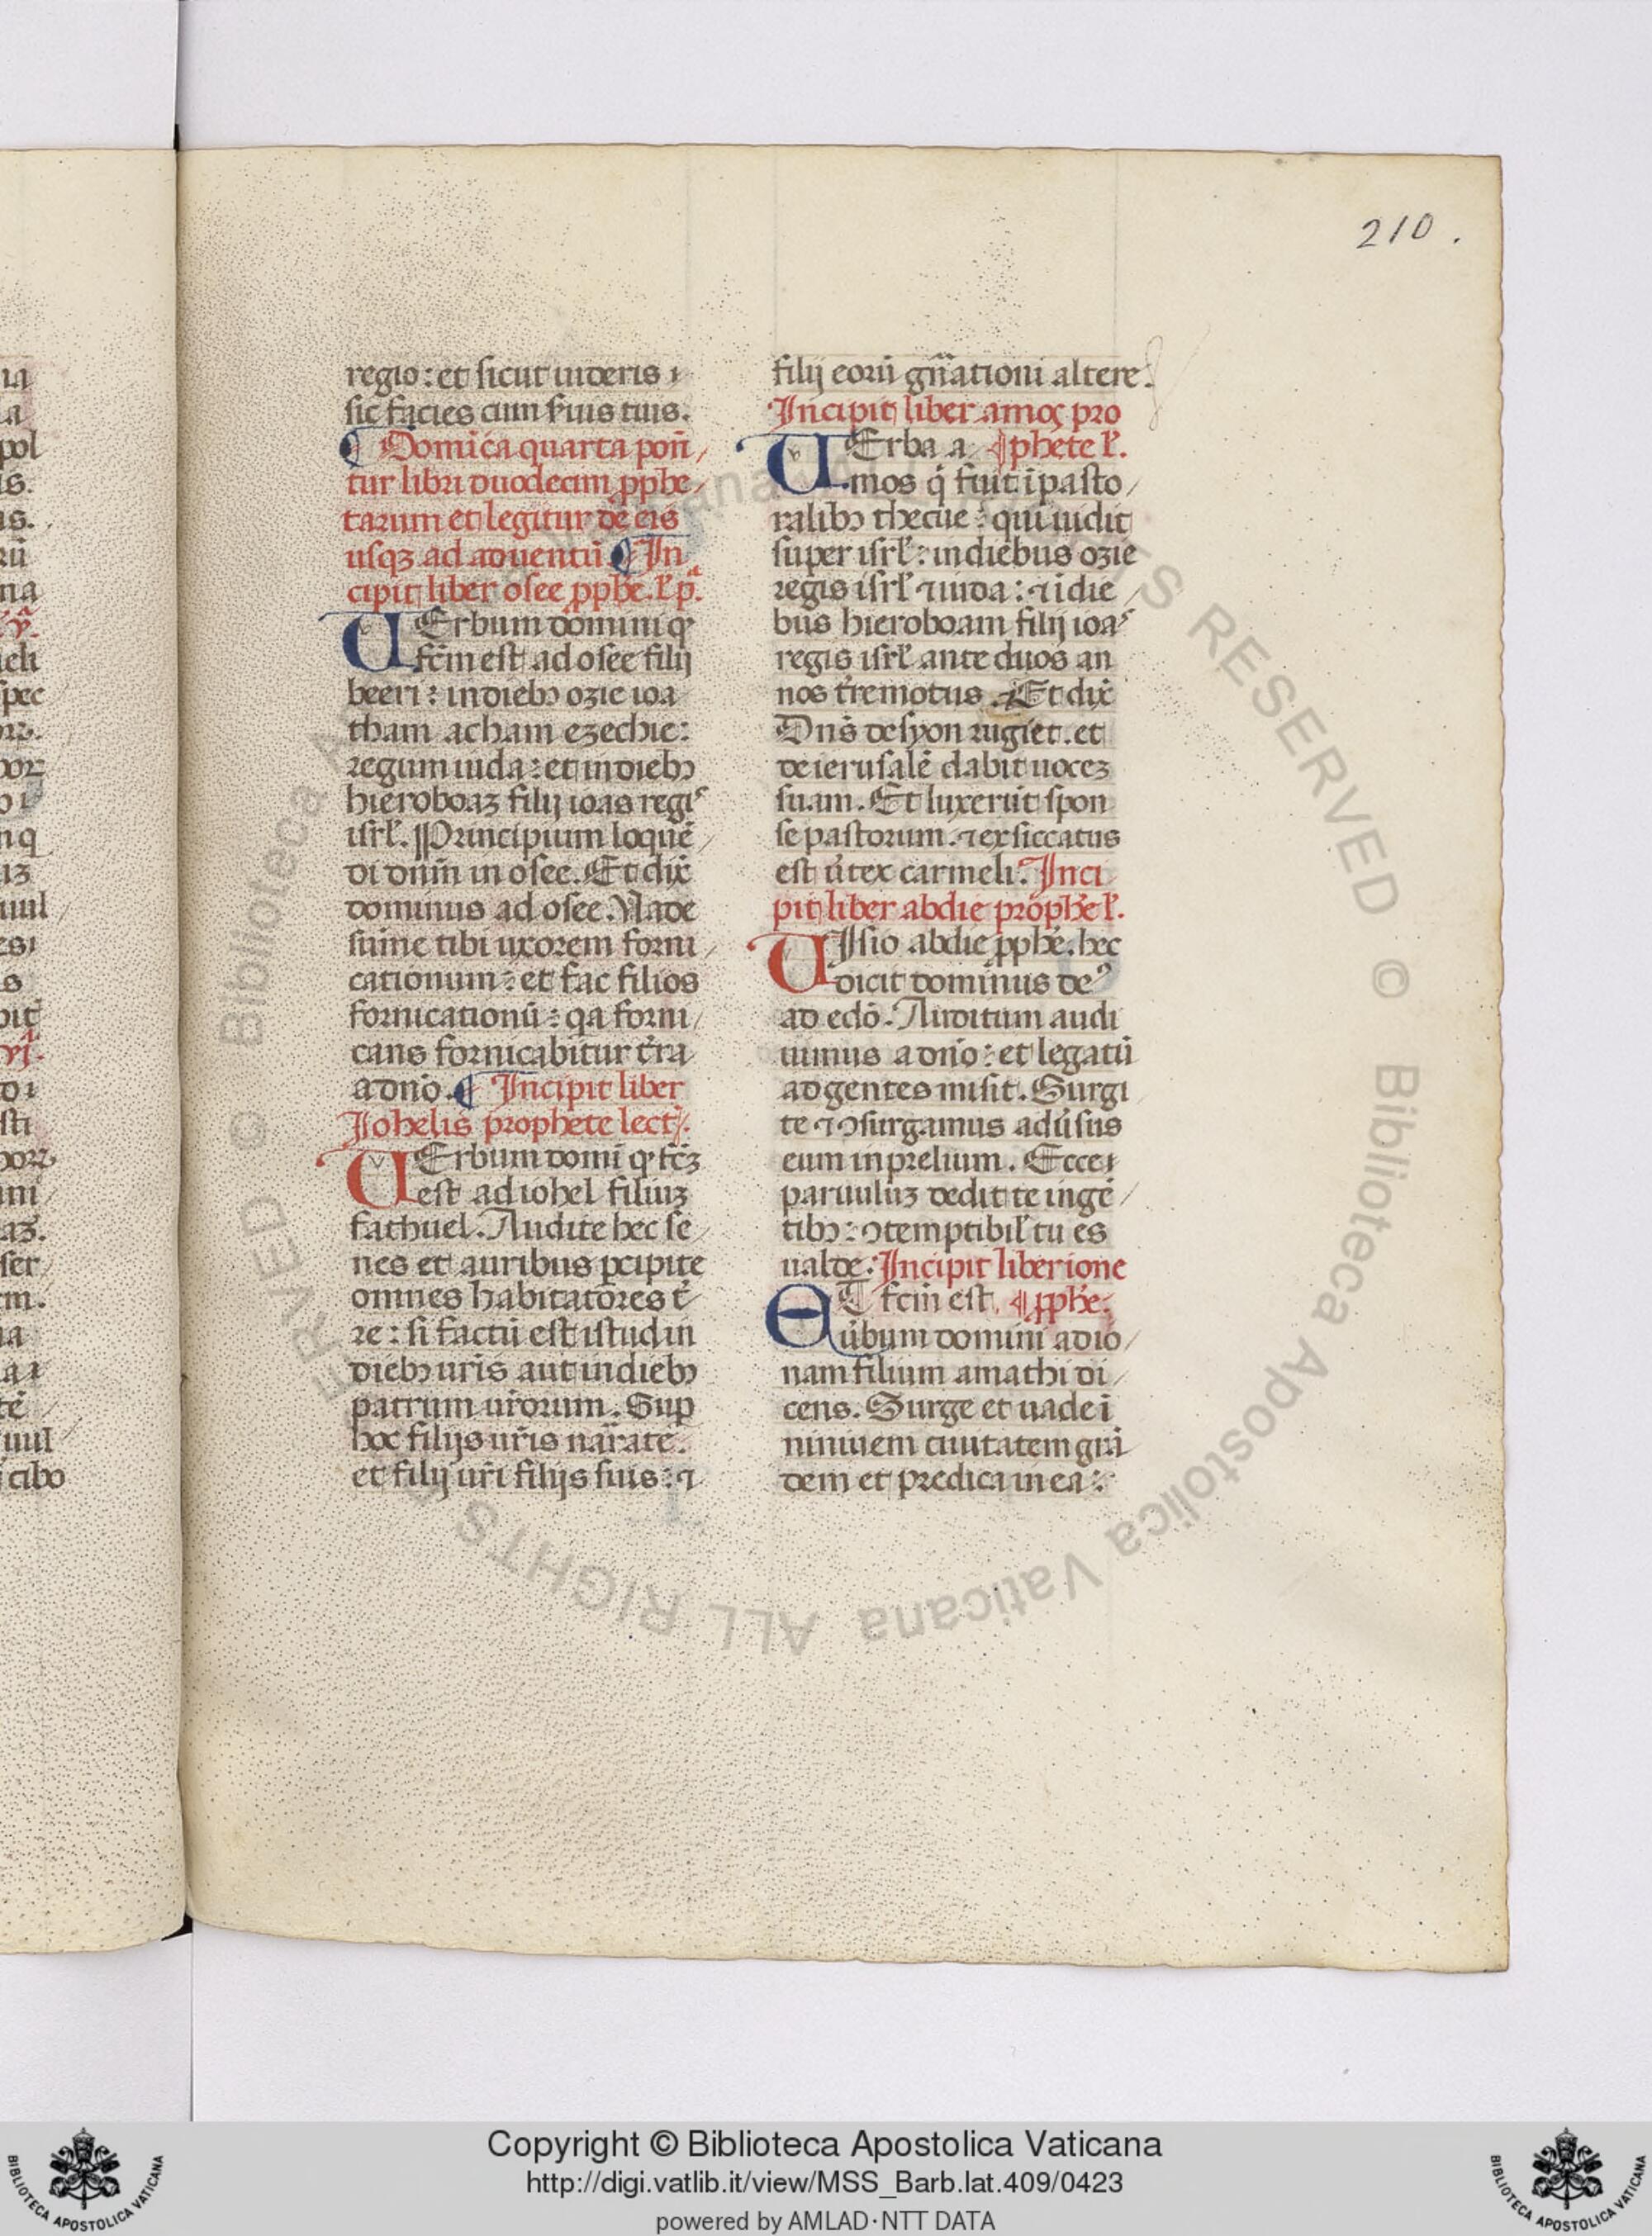 210.
regio: et sicut uideris ı
sic facies cum s̾uis tuis.
¶ Domica quarta pon̄
tur libri duodecim ꝓphe
tarum et legitur de eis
usqꝫ ad aduentū ¶ In
cipit liber osee ꝓphe. l' pª.
UErbum domini qͦ
fcm̄ est ad osee filij
beeri: in diebꝫ ozie ioa
tham acham ezechie:
regum iuda: et in diebꝫ
hieroboaꝫ filij ioas regis
isrl'. Principium loquē
di dnm̄ in osee. Et dix̄
dominus ad osee. Uade
sume tibi uxorem forni
cationum: et fac filios
fornicationū: qa forni
cans fornicabitur t̄ra
a dnō. ¶ Incipit liber
Johelis prophete lect'.
UErbum domī qͦ fc̄ꝫ
est ad iohel filiuꝫ
fathuel. Audite hec se
nes et auribus ꝑcipite
omnes habitatores t̄
re: si factū est istud in
diebꝫ uris̄ aut in diebꝫ
patrum uro̅rum. Suꝑ
hoc filijs uris̄ narrate.
et filij uri̅ filijs suis: ⁊
filij eorū gn̄ationi altere.
Incipit liber amos pro
UErba a ¶phete l'.
mos q̇ fuit ī pasto
ralibꝫ thecue: qui uidit
super isrl': in diebus ozie
regis isrl' ⁊ iuda: ⁊ ī die
bus hieroboam filij ioas
regis isrl' ante duos an
nos t̄remotus. Et dix̄
Dns̄ de syon rugiet. et
de ierusalē dabit uoceꝫ
suam. Et luxerūt spon
se pastorum. ⁊ exsiccatus
est u̇tex carmeli. Inci
pit liber abdie prophe l'.
UIsio abdie ꝓphe. hec
dicit dominus de9
ad edō. Auditum audi
uimus a dnō: et legatū
ad gentes misit. Surgi
te ⁊ ꝯsurgamus adu̇sus
eum in prelium. Ecce ı
paruuluꝫ dedit te in gē
tibꝫ: ꝯtemptibil' tu es
ualde. Incipit liber ione
ET fcm̄ est ¶ꝓphe.
u̇bum domini ad io
nam filium amathi di
cens. Surge et uade ī
niniuem ciuitatem grā
dem et predica in ea:
Copyright © Biblioteca Apostolica Vaticana
http://digi.vatlib.it/view/MSS_Barb.lat.409/0423
powered by AMLAD·NTT DATA
BIBLIOTECA APOSTOLICA VATICANA
BIBLIOTECA APOSTOLICA VATICANA